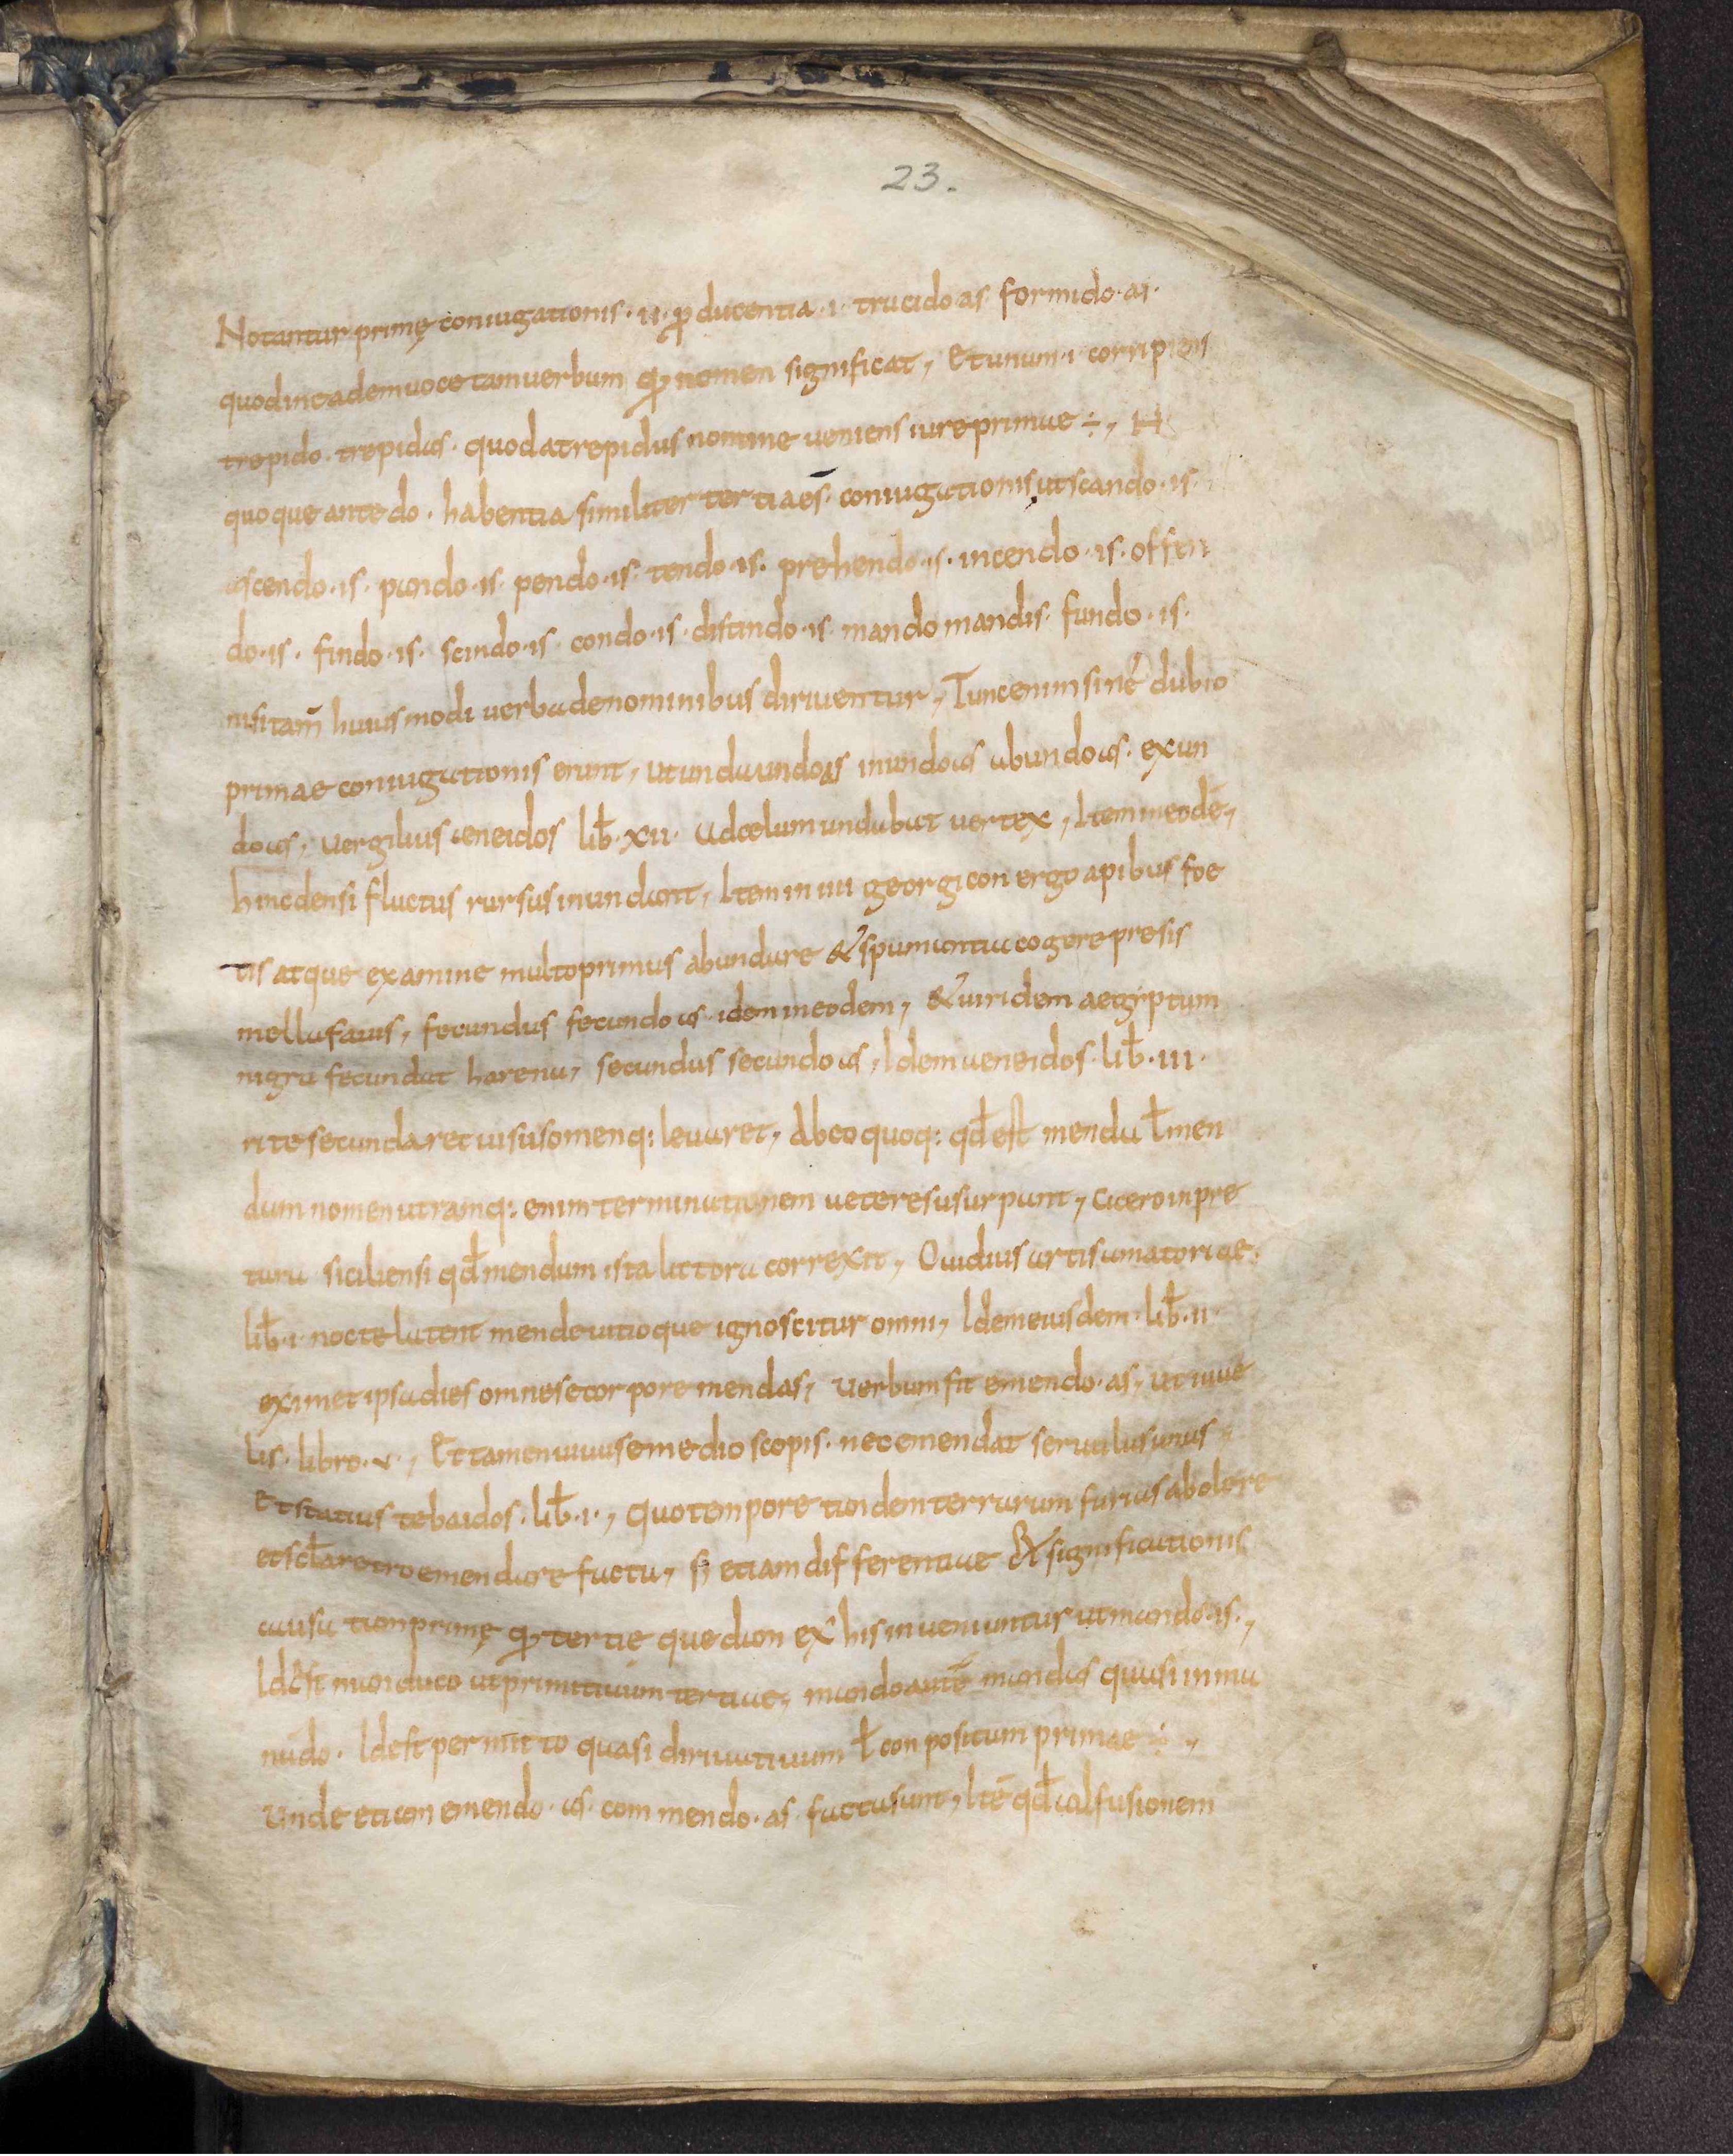 23.
Notantur primę coniugationis · ii · producentia · i · trucido as formido · as ·
quod in eadem voce tam verbum qđ nomen significat, Et unum · i · corripiens
trepido · trepidas · quod a trepidus nomine veniens iure primae ÷, H
quoque ante do · habentia similiter tertiae s̄ · coniugationis, ut scando · is ·
ascendo · is · pando · is · pendo · is · tendo · is · prehendo · is · incendo · is · offen
do · is · findo · is · scindo · is · condo · is · distindo · is · mando mandis · fundo · is ·
nisi tam̄ huius modi verba de nominibus diriventur, Tunc enim sine dubio
primae coniugationis erunt, ut unda undo as inundo as abundo as · exun
do as, vergilius aeneidos lib̄ · xii · ad celum undabat vertex, Item in eodē,
hinc densi fluctus rursus inundant, Item in iiii georgicon ergo apibus foe
tis atque examine multo primus abundare & spumantia cogere presis
mella favis, fecundus fecundo as · idem in eodem, & viridem aegyptum
nigra fecundat harena, secundus secundo as, Idem aeneidos · lib̄ · iii ·
rite secundaret visus omenq: levaret, Ab eo quoq: qd̄ est menda ł men
dum nomen utramq: enim terminationem veteres usurpant, cicero in pre
tura siciliensi qd̄ mendum ista littora correxit, Ovidius artis amatoriae ·
lib̄ · i · nocte latent mende vitioque ignoscitur omni, Idem eiusdem · lib̄ · ii ·
eximet ipsa dies omnes e corpore mendas, verbum fit emendo · as, ut iuve
lis · libro · v ·, Et tamen unus semedio scopis · nec emendat servulus unus,
Et statius tebaidos · lib̄ · i ·, quo tempore tandem terrarum furias abolere
et scł̄a retro emendare facta, si etiam differentiae & significationis
causa tam primę qđ tertię quedam ex his inveniuntur ut mando · is ·,
Id est manduco ut primitivum tertiae, mando autē mandas quasi in ma
nū do · Id est permitto quasi dirivativum ł conpositum primae ÷,
unde etiam emendo · as · commendo · as · facta sunt, Itē qd̄ ad fusionem